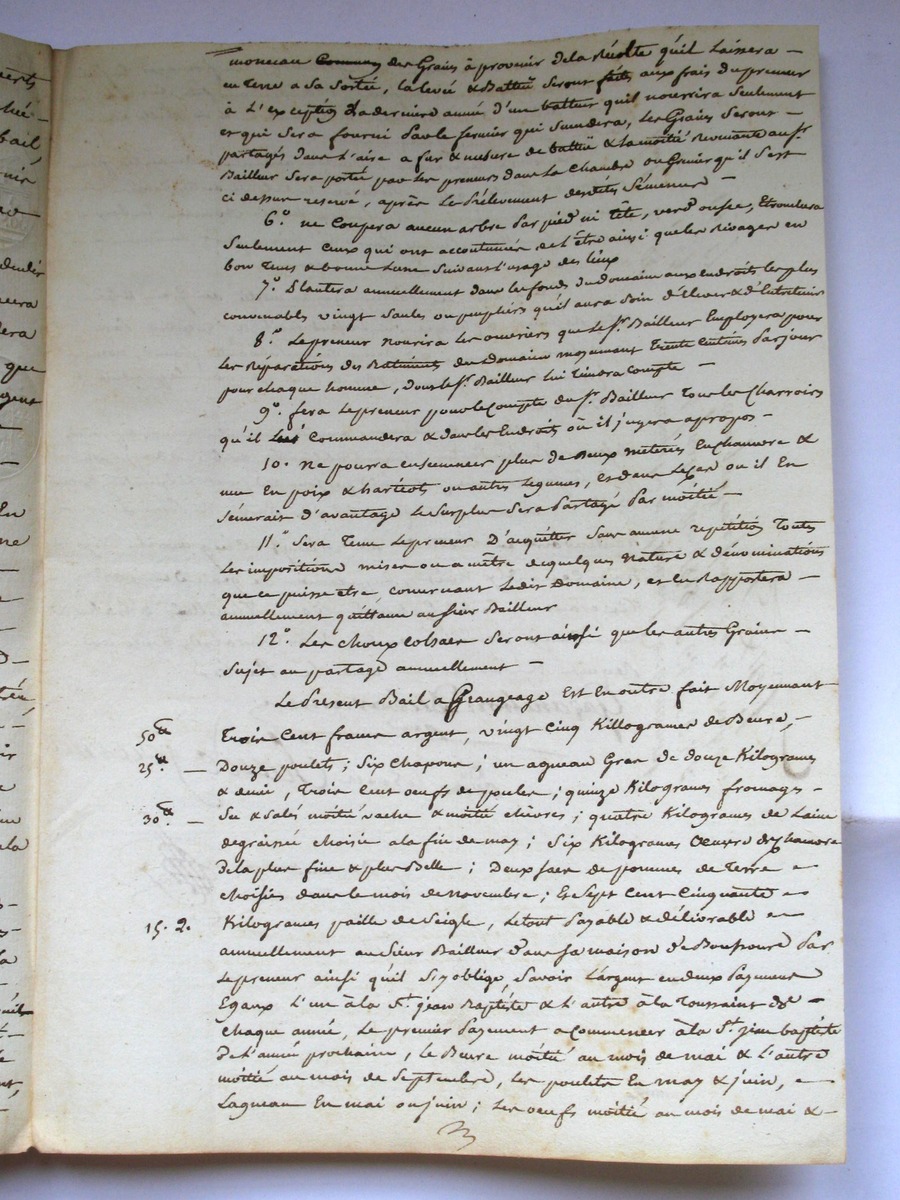 monceau Commun des Grains à provenir dela Récolte qu'il Laissera —
en Terre a Sa Sortie, la levée & Battue Seront faits aux frais du preneur
à L'exception dela derniere année d'un batteur qu'il nourrira Seulement
et qui Sera fourni par le fermier qui Suivdera, Les Grains Seront —
partagés dans L'aire a fur & mesure de battue & la moitié Revenante au Sr.
Bailleur Sera portée par les preneurs dans la Chambre ou Grenier qu'il S'est
ci dessus reservé, après le Prélevement desdites Sémences —
6.° ne Coupera aucun arbre par pied ni Tête, verd ou sec, Etronchera
Seulement Ceux qui ont accoutumés de L'être ainsi que les Rivages en
bon Tems & bonne Lune Suivant L'usage des Lieux
7.° Plantera annuellement dans les fonds du domaine aux endroits les plus
convenables vingt Saules ou peupliers qu'il aura Soin d'Elever & d'Entretenir
8.° Le preneur nourira les ouvriers que le Sr. Bailleur Employera pour
les Réparations des Batiments du Domaine moyennant Trente Centimes Par jour
pour chaque homme, dont le Sr. Bailleur lui Tiendra Compte —
9.° fera Le preneur pour le Compte du Sr. Bailleur Tous les Charrois
qu'il Lui Commandera & dans les Endroits où il jugera a propos —
10.° Ne pourra ensemencer plus de Deux meterés En chanvre &
une En poix & haricots ou autres Legumes, Et dans Le cas ou il En
Sémerait d'avantage Le Surplus Sera Partagé Par moitié —
11.° Sera Tenu Le preneur D'acquitter Sans aucune repetition Toutes
Les impositions mises ou a mêtre de quelques Nature & dénominations
que ce puisse etre, concernant Ledit Domaine, et En Rapportera —
annuellement quittance au Sieur Bailleur
12.° Les choux Colsaes Seront ainsi que les autres Grains —
Sujet au partage annuellement —
Le Present Bail a Grangeage Est En outre fait Moyennant
50 Trois Cent francs argent, vingt Cinq Killogrames de Beure, —
25 — Douze poulets; Six Chapons; un agneau Gras de douze Kilogrames
& demie, Trois Cent oeufs de poules; quinze Kilogrames fromages —
30 — Sec & Salés moitié vache & moitié chèvres; quatre Kilogrames de Laine
degraissée choisie a la fin de may; Six Kilogrames Oeuvre de chanvre
de la plus fine & plus Belle; Deux sacs de pommes de Terre —
choisies dans le mois de novembre; Et Sept Cent Cinquante —
15. 2. Kilogrames paille de Seigle, Le tout Payable & délivrable —
annuellement au Sieur Bailleur dans Sa maison de Par
Le preneur ainsi qu'il S'y oblige, Savoir L'argent en deux Payemens
Egaux L'un à la St. jean Baptiste & L'autre à la Toussaint de —
Chaque année, Le premier Payement a Commencer à la St. jean baptiste
de L'année prochaine, Le Beure moitié au mois de mai & L'autre
moitié au mois de Septembre, Les poulets En may & juin, —
L'agneau En mai ou juin; Les oeufs moitié au mois de mai & —